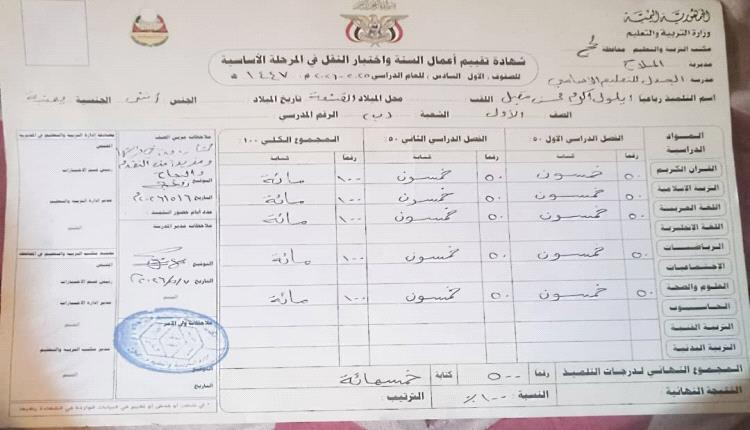 الجمهورية اليمنية
وزارة التربية والتعليم
مكتب التربية والتعليم محافظة لحج
مديرية الملاح
مدرسة للتعليم الأساسي
شهادة تقييم أعمال السنة واختبار النقل في المرحلة الأساسية
للصفوف الأول السادس للعام الدراسي ٢٠٢٥-٢٠٢٦م ١٤٤٧هـ
اسم التلميذ رباعيا أيلول أكرم محسن مقبل اللقب محل الميلاد تاريخ الميلاد الجنس أنثى الجنسية يمنية
الصف الأول الشعبة ب الرقم المدرسي
المواد الدراسية الفصل الدراسي الأول ٥٠ الفصل الدراسي الثاني ٥٠ المجموع الكلي ١٠٠
رقما كتابة رقما كتابة رقما كتابة
القرآن الكريم ٥٠ خمسون ٥٠ خمسون ١٠٠ مائة
التربية الإسلامية ٥٠ خمسون ٥٠ خمسون ١٠٠ مائة
اللغة العربية ٥٠ خمسون ٥٠ خمسون ١٠٠ مائة
اللغة الانجليزية
الرياضيات ٥٠ خمسون ٥٠ خمسون ١٠٠ مائة
الاجتماعيات
العلوم والصحة ٥٠ خمسون ٥٠ خمسون ١٠٠ مائة
الحاسوب
التربية الفنية
التربية البدنية
المجموع النهائي لدرجات التلميذ رقما ٥٠٠ كتابة خمسمائة
النتيجة النهائية النسبة: ١٠٠٪ الترتيب:
ملاحظات مربي الصف
ومزيدا من التقدم
والنجاح
التوقيع
التاريخ
عدد أيام حضور التلميذ
ملاحظات مدير المدرسة
التوقيع
التاريخ
الختم
ملاحظات ولي الأمر
التوقيع
التاريخ
مصادقة إدارة التربية والتعليم في المديرية
المختص
رئيس قسم الاختبارات
مدير إدارة التربية والتعليم
الختم
المختص
مدير إدارة الاختبارات
مدير مكتب التربية والتعليم
الختم